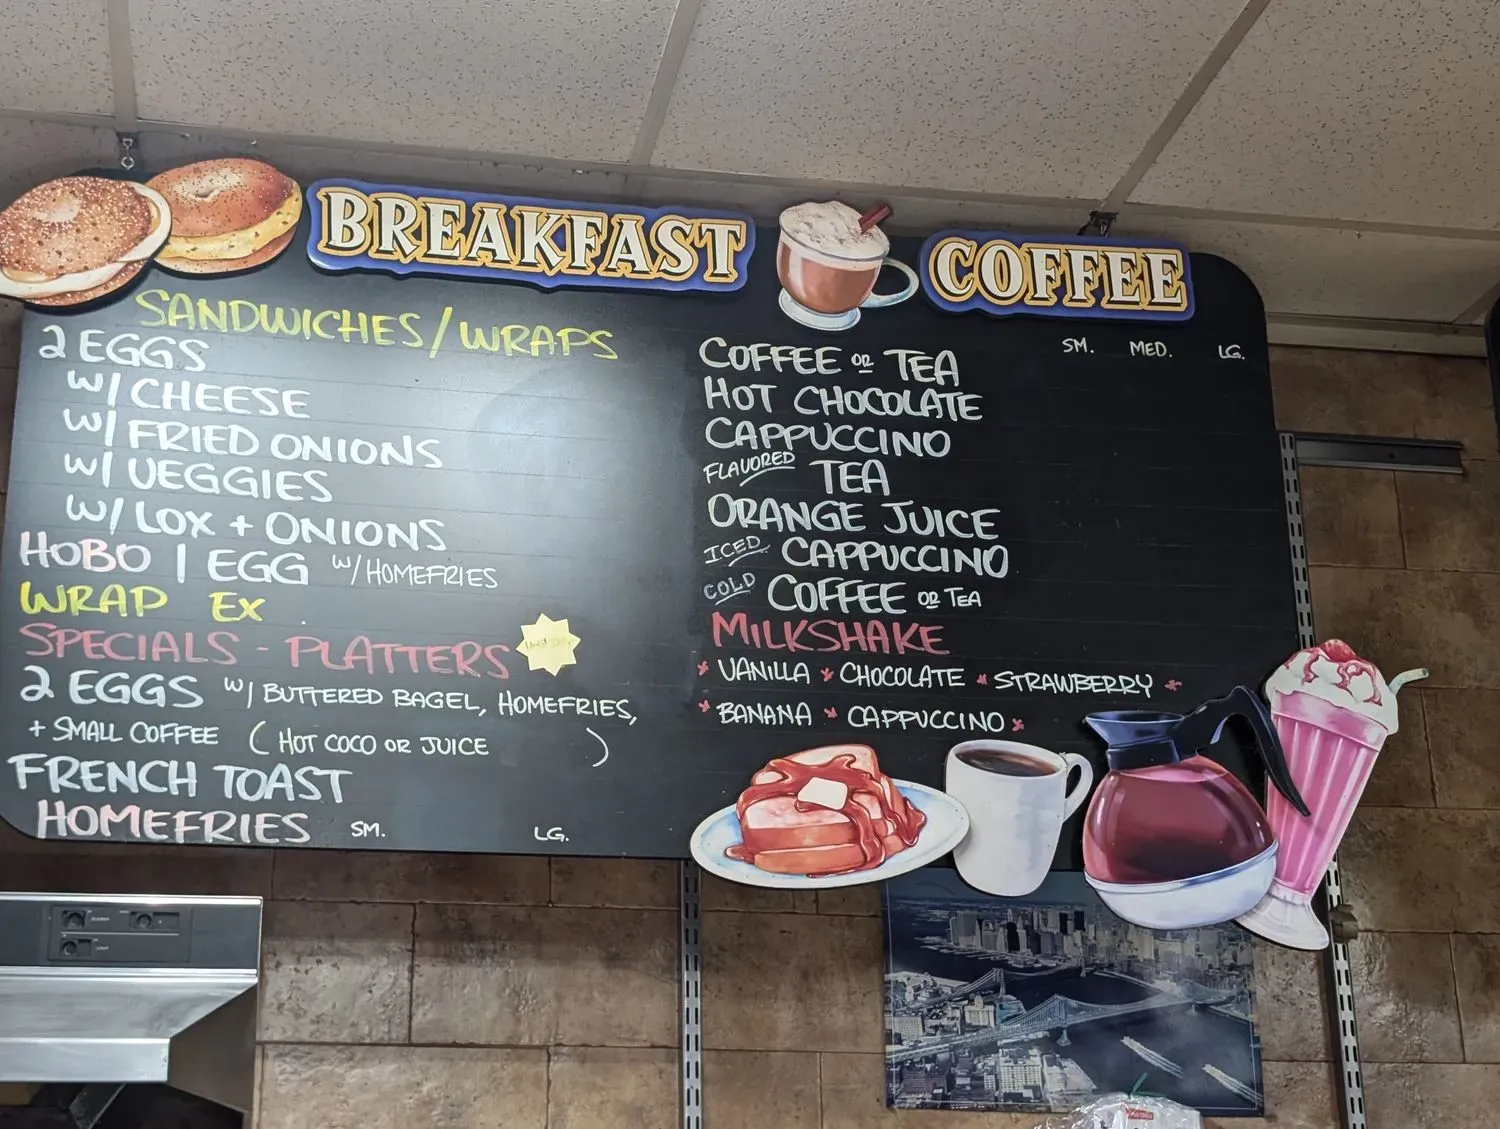 BREAKFAST
SANDWICHES/WRAPS
2 EGGS
W/ CHEESE
W/ FRIED ONIONS
W/ VEGGIES
W/ LOX + ONIONS
HOBO 1 EGG W/HOMEFRIES
WRAP EX
SPECIALS - PLATTERS
2 EGGS W/ BUTTERED BAGEL, HOMEFRIES,
+ SMALL COFFEE (HOT COCO OR JUICE )
FRENCH TOAST
HOMEFRIES SM. LG.
COFFEE
SM. MED. LG.
COFFEE OR TEA
HOT CHOCOLATE
CAPPUCCINO
FLAVORED TEA
ORANGE JUICE
ICED CAPPUCCINO
COLD COFFEE OR TEA
MILKSHAKE
* VANILLA * CHOCOLATE * STRAWBERRY *
* BANANA * CAPPUCCINO *